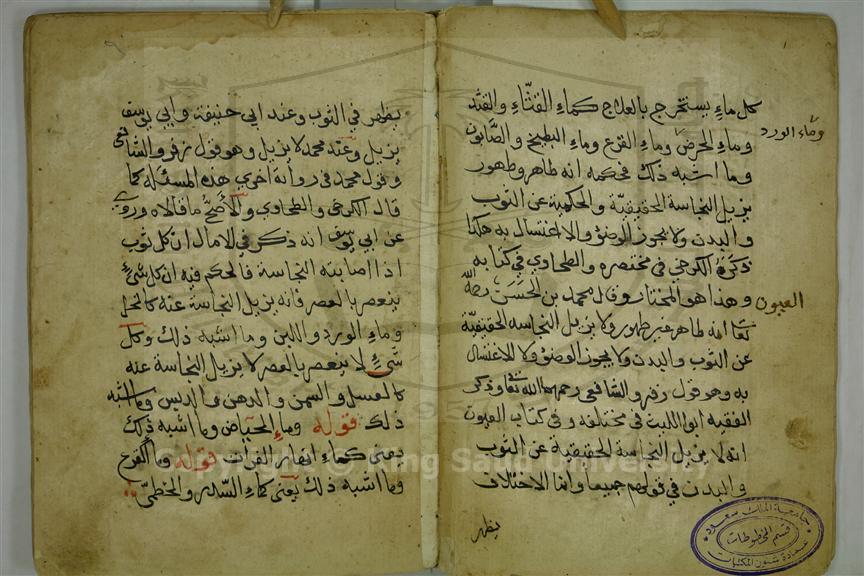 كل ماء يستخرج بالعلاج كماء القثاء والقثد
وماء الورد
وماء الحرض وماء القرع وماء البطيخ والصابون
وما اشبه ذلك فحكمه انه طاهر وطهور
يزيل النجاسة الحقيقية والحكمية عن الثوب
والبدن ولا يجوز الوضؤ والاغتسال به هكذا
ذكره الكرخي في مختصره والطحاوي في كتابه
وهذا هو المختار وقال محمد بن الحسن رحمه الله
العيون
انه طاهر غير طهور ولا يزيل النجاسه الحقيقية
عن الثوب والبدن ولا يجوز الوضؤ ولا الاغتسال
به وهو قول زفر والشافعي رحمهما الله تعا وذكر
الفقيه ابو الليث في مختلفه وفي كتاب العيون
انه لا يزيل النجاسة الحقيقية عن الثوب
والبدن في قولهم جميعا وانما الاختلاف
يظهر
يظهر في الثوب وعند ابي حنيفة وابي يوسف
يزيل وعند محمد لا يزيل وهو قول زفر والشافعي
وقول محمد في رواية اخري هذه المسئلة كما
قال الكرخي والطحاوي والاصح ما قالاه وروي
عن ابي يوسف انه ذكر في الامال ان كل ثوب
اذا اصابته النجاسة فالحكم فيه ان كل شيء
ينعصر بالعصر فانه يزيل النجاسة عنه كالخل
وماء الورد واللبن وما اشبه ذلك وكل
شيء لا ينعصر بالعصر لا يزيل النجاسة عنه
كالعسل والسمن والدهن والدبس وما اشبه
ذلك قوله وماء الحياض وما اشبه ذلك
يعني كماء انهار الفرات قوله
وما اشبه ذلك يعني كماء السدر والخطمي
جامعة الملك سعود
قسم المخطوطات
عمادة شئون المكتبات
Copyright © King Saud University